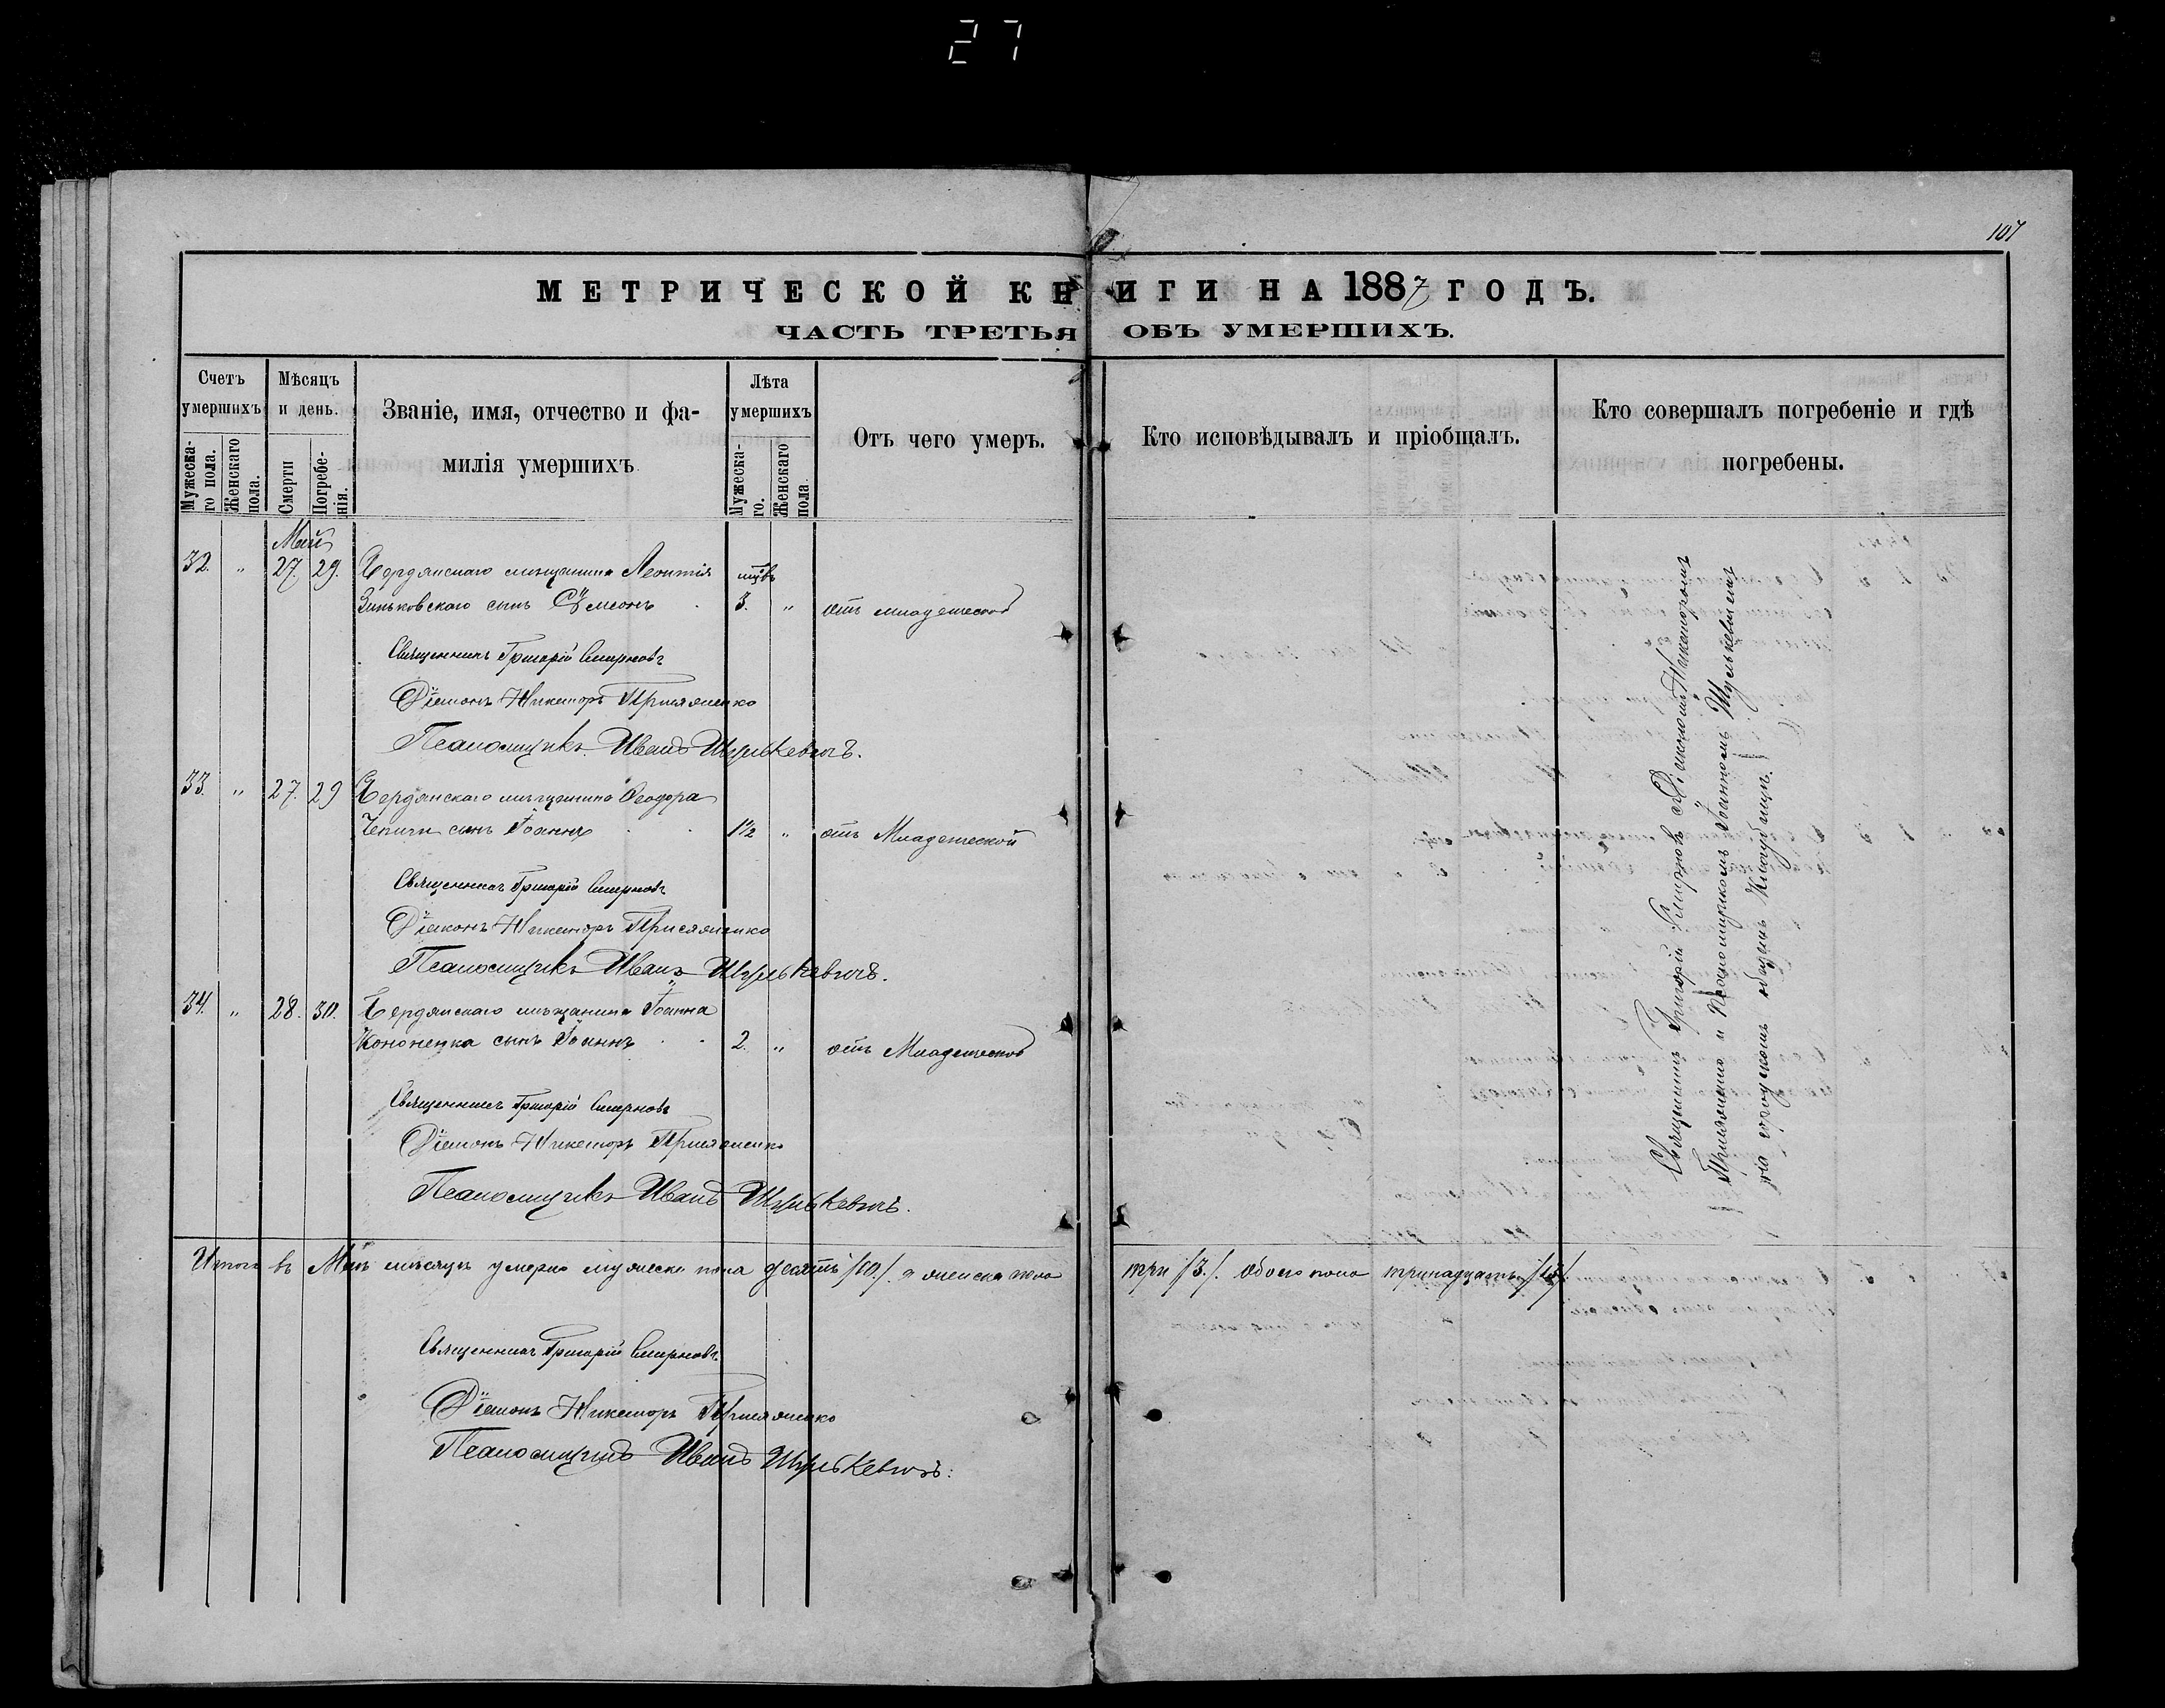 27
107
МЕТРИЧЕСКОЙ КНИГИ НА 1887 ГОДЪ.
ЧАСТЬ ТРЕТЬЯ ОБЪ УМЕРШИХЪ.
Счетъ умершихъ
Мужескаго пола.
Женскаго пола.
Мѣсяцъ и день.
Смерти
Погребенія.
Званіе, имя, отчество и фамилія умершихъ
Лѣта умершихъ
Мужескаго.
Женскаго пола
Отъ чего умеръ.
Кто исповѣдывалъ и пріобщалъ.
Кто совершалъ погребеніе и гдѣ погребены.
Май
32. " 27. 29. Бердянскаго мѣщанина Леонтія
Зиньковскаго сынъ Сѵмеонъ 3. " отъ младенческой
Священникъ Григорій Смирновъ
Діаконъ Никаноръ Присяженко
Псаломщикъ Иванъ Шулькевичъ.
33. " 27. 29 Бердянскаго мѣщанина Ѳеодора
Чепиги сынъ Іоаннъ 1½ " отъ Младенческой
Священникъ Григорій Смирновъ
Діаконъ Никаноръ Присяженко
Псаломщикъ Иванъ Шулькевичъ.
34. " 28. 30. Бердянскаго мѣщанина Іоанна
Кононенка сынъ Іоаннъ 2. " отъ Младенческой
Священникъ Григорій Смирновъ
Діаконъ Никаноръ Присяженко
Псаломщикъ Иванъ Шулькевичъ.
Священникъ Григорій Смирновъ съ Діакономъ Никаноромъ
Присяженко и Псаломщикомъ Іоанномъ Шулькевичемъ
на городскомъ общемъ Кладбищѣ.
Итого въ Маѣ мѣсяцѣ умерло мужеска пола десять /10./ а женска пола три /3./ обоего пола тринадцать /13/.
Священникъ Григорій Смирновъ.
Діаконъ Никаноръ Присяженко
Псаломщикъ Иванъ Шулькевичъ.